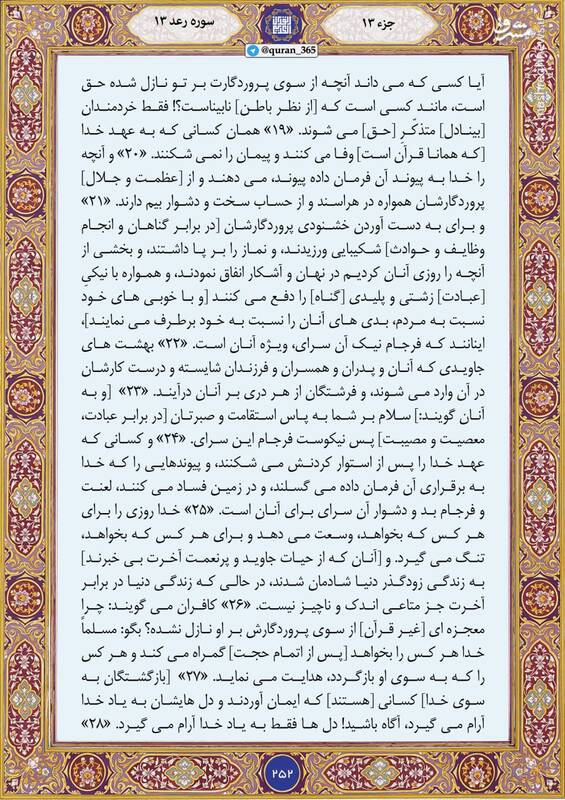 جزء ۱۳
سوره رعد ۱۳
@quran_365
مشرق
آیا کسی که می داند آنچه از سوی پروردگارت بر تو نازل شده حق
است، مانند کسی است که [از نظر باطن] نابیناست؟! فقط خردمندان
[بینادل] متذکّرِ [حق] می شوند. «۱۹» همان کسانی که به عهد خدا
[که همانا قرآن است] وفا می کنند و پیمان را نمی شکنند. «۲۰» و آنچه
را خدا به پیوند آن فرمان داده پیوند، می دهند و از [عظمت و جلال]
پروردگارشان همواره در هراسند و از حساب سخت و دشوار بیم دارند. «۲۱»
و برای به دست آوردن خشنودی پروردگارشان [در برابر گناهان و انجام
وظایف و حوادث] شکیبایی ورزیدند، و نماز را بر پا داشتند، و بخشی از
آنچه را روزی آنان کردیم در نهان و آشکار انفاق نمودند، و همواره با نیکیِ
[عبادت] زشتی و پلیدی [گناه] را دفع می کنند [و با خوبی های خود
نسبت به مردم، بدی های آنان را نسبت به خود برطرف می نمایند]،
اینانند که فرجام نیک آن سرای، ویژه آنان است. «۲۲» بهشت های
جاویدی که آنان و پدران و همسران و فرزندان شایسته و درست کارشان
در آن وارد می شوند، و فرشتگان از هر دری بر آنان درآیند. «۲۳» [و به
آنان گویند:] سلام بر شما به پاس استقامت و صبرتان [در برابر عبادت،
معصیت و مصیبت] پس نیکوست فرجام این سرای. «۲۴» و کسانی که
عهد خدا را پس از استوار کردنش می شکنند، و پیوندهایی را که خدا
به برقراری آن فرمان داده می گسلند، و در زمین فساد می کنند، لعنت
و فرجام بد و دشوار آن سرای برای آنان است. «۲۵» خدا روزی را برای
هر کس که بخواهد، وسعت می دهد و برای هر کس که بخواهد،
تنگ می گیرد. و [آنان که از حیات جاوید و پرنعمت آخرت بی خبرند]
به زندگی زودگذر دنیا شادمان شدند، در حالی که زندگی دنیا در برابر
آخرت جز متاعی اندک و ناچیز نیست. «۲۶» کافران می گویند: چرا
معجزه ای [غیر قرآن] از سوی پروردگارش بر او نازل نشده؟ بگو: مسلماً
خدا هر کس را بخواهد [پس از اتمام حجت] گمراه می کند و هر کس
را که به سوی او بازگردد، هدایت می نماید. «۲۷» [بازگشتگان به
سوی خدا] کسانی [هستند] که ایمان آوردند و دل هایشان به یاد خدا
آرام می گیرد، آگاه باشید! دل ها فقط به یاد خدا آرام می گیرد. «۲۸»
۲۵۲